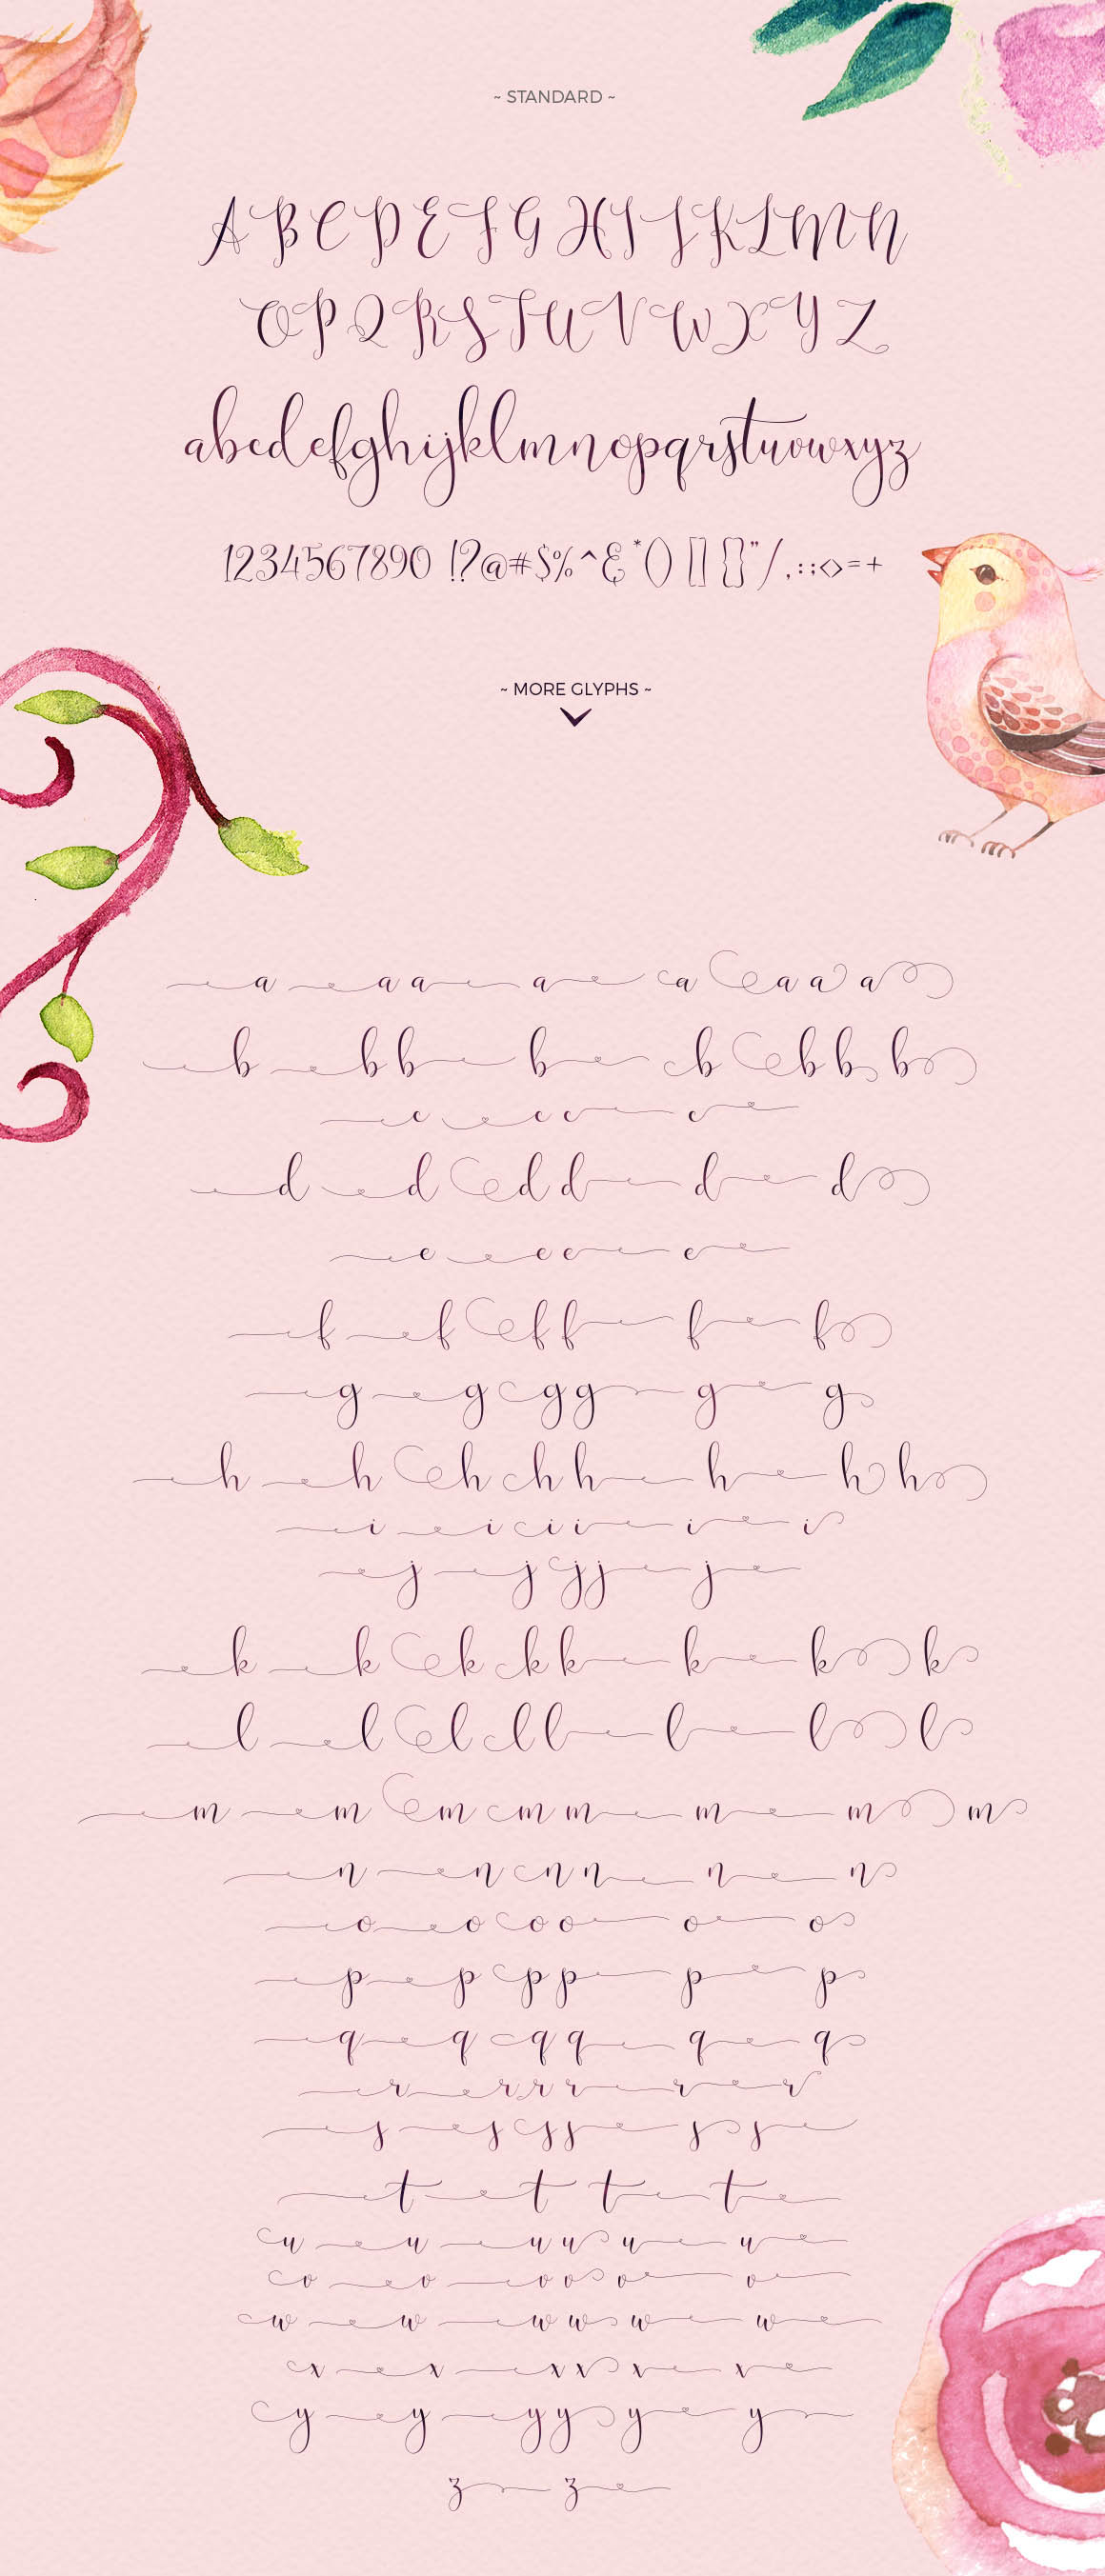 ~ STANDARD ~
A B C D E F G H I J K L M N
O P Q R S T U V W X Y Z
abcdefghijklmnopqrstuvwxyz
1234567890 !?@#$%^&*() [] {}"/,:;<>=+
~ MORE GLYPHS ~
a a a a a a a a
b b b b b b b b
c c c c
d d d d d d
e e e e
f f f f f f
g g g g g g
h h h h h h h h
i i i i i i
j j j j j
k k k k k k k k
l l l l l l l l
m m m m m m m m
n n n n n n
o o o o o o
p p p p p p
q q q q q q
r r r r r r
s s s s s s
t t t t
u u u u u u
v v v v v v
w w w w w w
x x x x x x
y y y y y y
z z